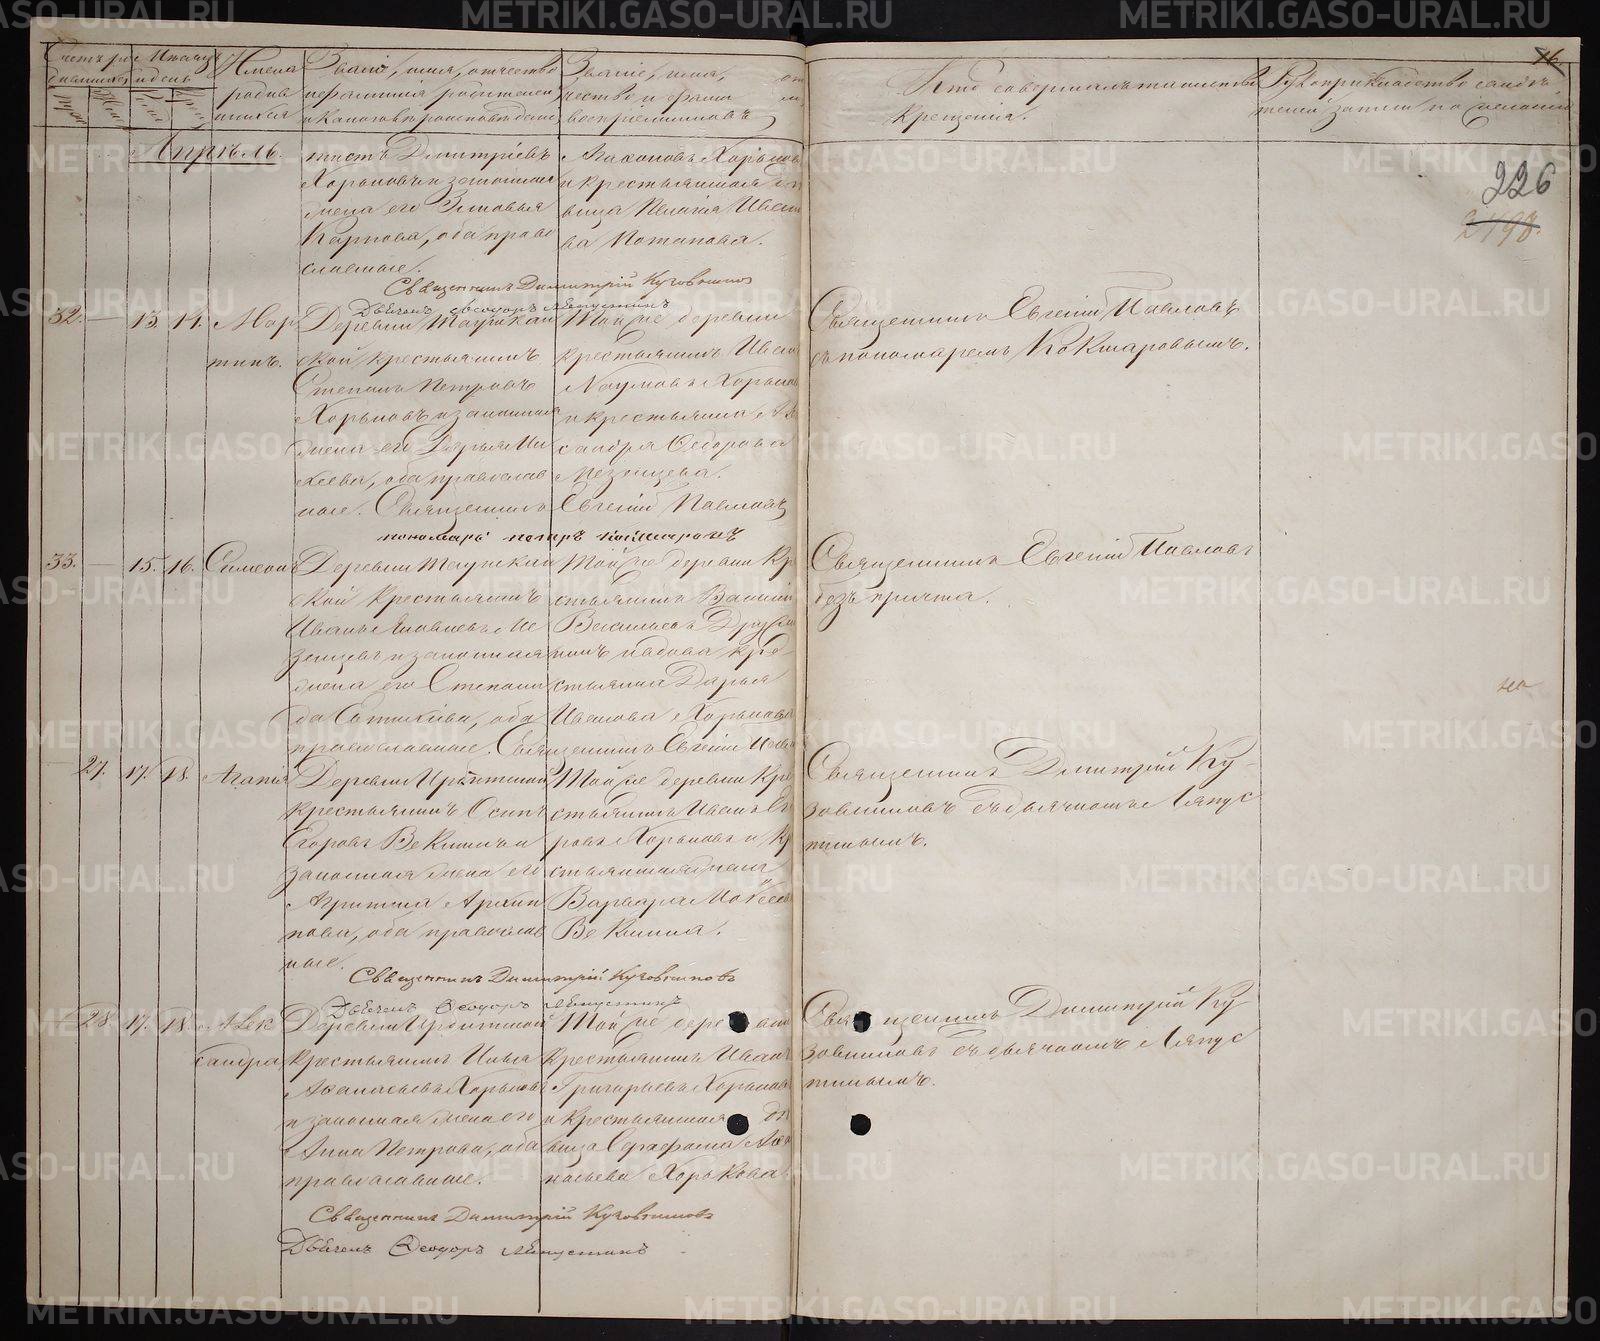 Имена
родив
шихся
Званіе, имя, отчество
и фамилія родителей
и какого вѣроисповѣданія
Званіе, имя,
чество и фами
воспріемниковъ
Кто совершалъ таинство
крещенія.
Рукоприкладство свидѣ
телей записи по желанію
226
Апрѣль.
Димитріевъ
Хорьковъ и законная
жена его Зиновья
Карпова, оба право
славные.
Агафоновъ Хорьковъ
и крестьянская дѣ
вица Пелагія Ивано
ва Потапова.
Священникъ Димитрій Кузовниковъ
Дьячекъ Ѳеодоръ Ляпустинъ
32. — 13. 14. Мар
тинъ.
Деревни
ской крестьянинъ
Степанъ Петровъ
Хорьковъ и законная
жена его Дарья
оба православ
ные.
Той же деревни
крестьянинъ Иванъ
Наумовъ Хорьковъ
и крестьянка
сандра Ѳедорова
Мезенцева.
Священникъ Евгеній Павловъ
пономарь Петръ Кокшаровъ
Священникъ Евгеній Павловъ
съ пономаремъ Кокшаровымъ.
33. — 15. 16. Симеонъ
Деревни
ской крестьянинъ
Иванъ Яковлевъ Ме
зенцевъ и законная
жена его Степани
да оба
православные.
Той же деревни кре
стьянинъ Василій
Васильевъ
вдова кре
стьянка Дарья
Иванова Хорькова
Священникъ Евгеній Павловъ
Священникъ Евгеній Павловъ
безъ причта.
27. 17. 18. Агапія
Деревни Ирбитской
крестьянинъ Осипъ
Егоровъ Векшинъ и
законная жена его
Агрипина Архип
пова, оба православ
ные.
Той же деревни кре
стьянинъ Иванъ Его
ровъ Хорьковъ и кр
стьянская жена
Варвара
Векшина.
Священникъ Димитрій Кузовниковъ
Дьячекъ Ѳеодоръ Ляпустинъ
Священникъ Димитрій Ку-
зовниковъ съ дьячкомъ Ляпус
тинымъ.
28. 17. 18. Алек
сандра
Деревни Ирбитской
крестьянинъ Илья
Аѳанасьевъ Хорьковъ
и законная жена его
Анна Петрова, оба
православные.
Той же деревни
крестьянинъ Иванъ
Григорьевъ Хорьковъ
и крестьянская дѣ
вица Серафима Аѳа
насьева Хорькова
Священникъ Димитрій Кузовниковъ
Дьячекъ Ѳеодоръ Ляпустинъ
Священникъ Димитрій Ку-
зовниковъ съ дьячкомъ Ляпус
тинымъ.
METRIKI.GASO-URAL.RU